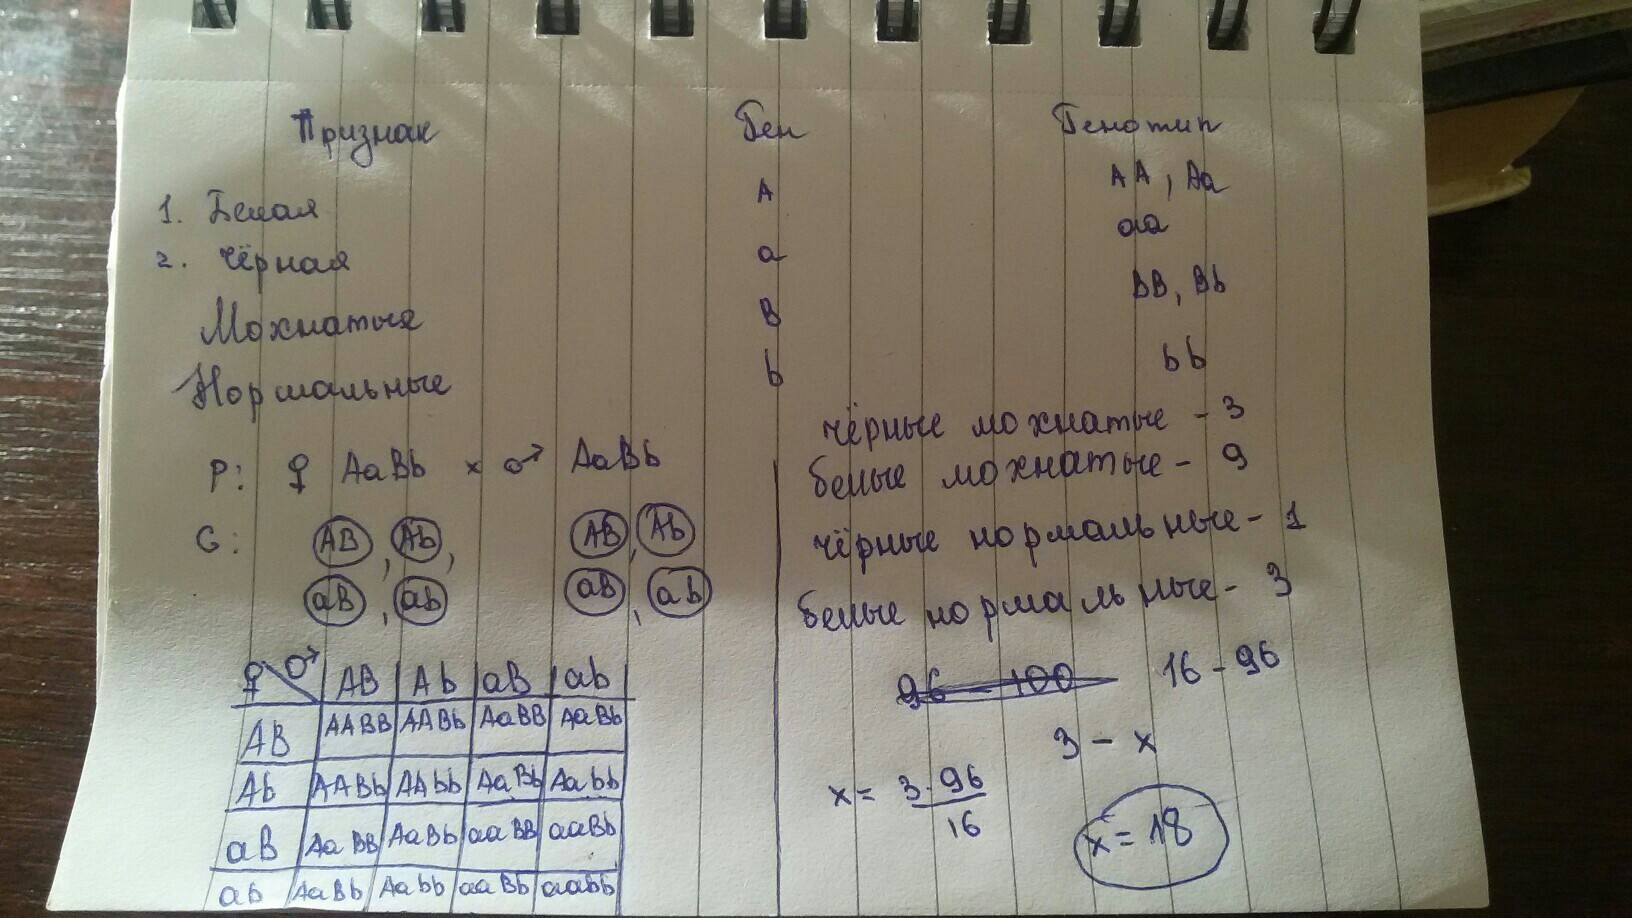 Признак Ген Генотип
1. Белая A AA, Aa
2. Чёрная a aa
Мохнатые B BB, Bb
Нормальные b bb
P: ♀ AaBb × ♂ AaBb
G: AB, Ab, AB, Ab
aB, ab aB, ab
♀ ♂ AB Ab aB ab
AB AABB AABb AaBB AaBb
Ab AABb AAbb AaBb Aabb
aB AaBB AaBb aaBB aaBb
ab AaBb Aabb aaBb aabb
чёрные мохнатые - 3
белые мохнатые - 9
чёрные нормальные - 1
белые нормальные - 3
96 - 100 16 - 96
3 - x
x = 3·96
16
x = 18